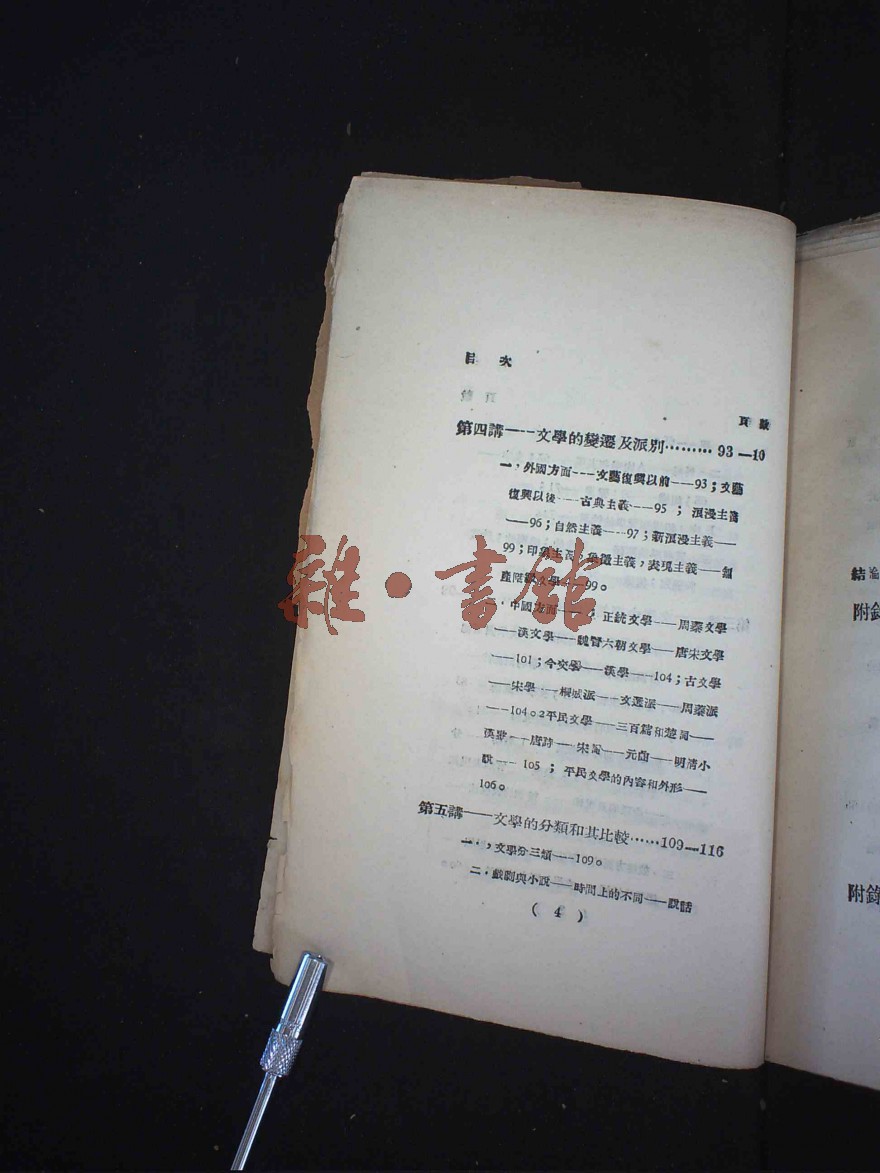 目 次
頁 數
第四講——文學的變遷及派別……… 93—10
一，外國方面——文藝復興以前——93；文藝
復興以後——古典主義——95；浪漫主義
——96；自然主義——97；新浪漫主義——
99；印象主義，象徵主義，表現主義——無
產階級文學——99。
二．中國方面——正統文學——周秦文學
——漢文學——魏晉六朝文學——唐宋文學
——101；今文學——漢學——104；古文學
——宋學——桐城派——文選派——周秦派
——104。2平民文學——三百篇和楚詞——
漢詩——唐詩——宋詞——元曲——明清小
說——105；平民文學的內容和外形——
106。
第五講——文學的分類和其比較……109—116
一，文學分三類——109。
二．戲劇與小說——時間上的不同——說話
( 4 )
結論
附錄
附錄
雜·書館